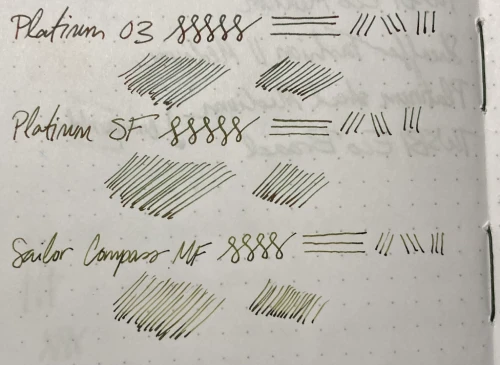 Platinum 03
Platinum SF
Sailor Compass MF